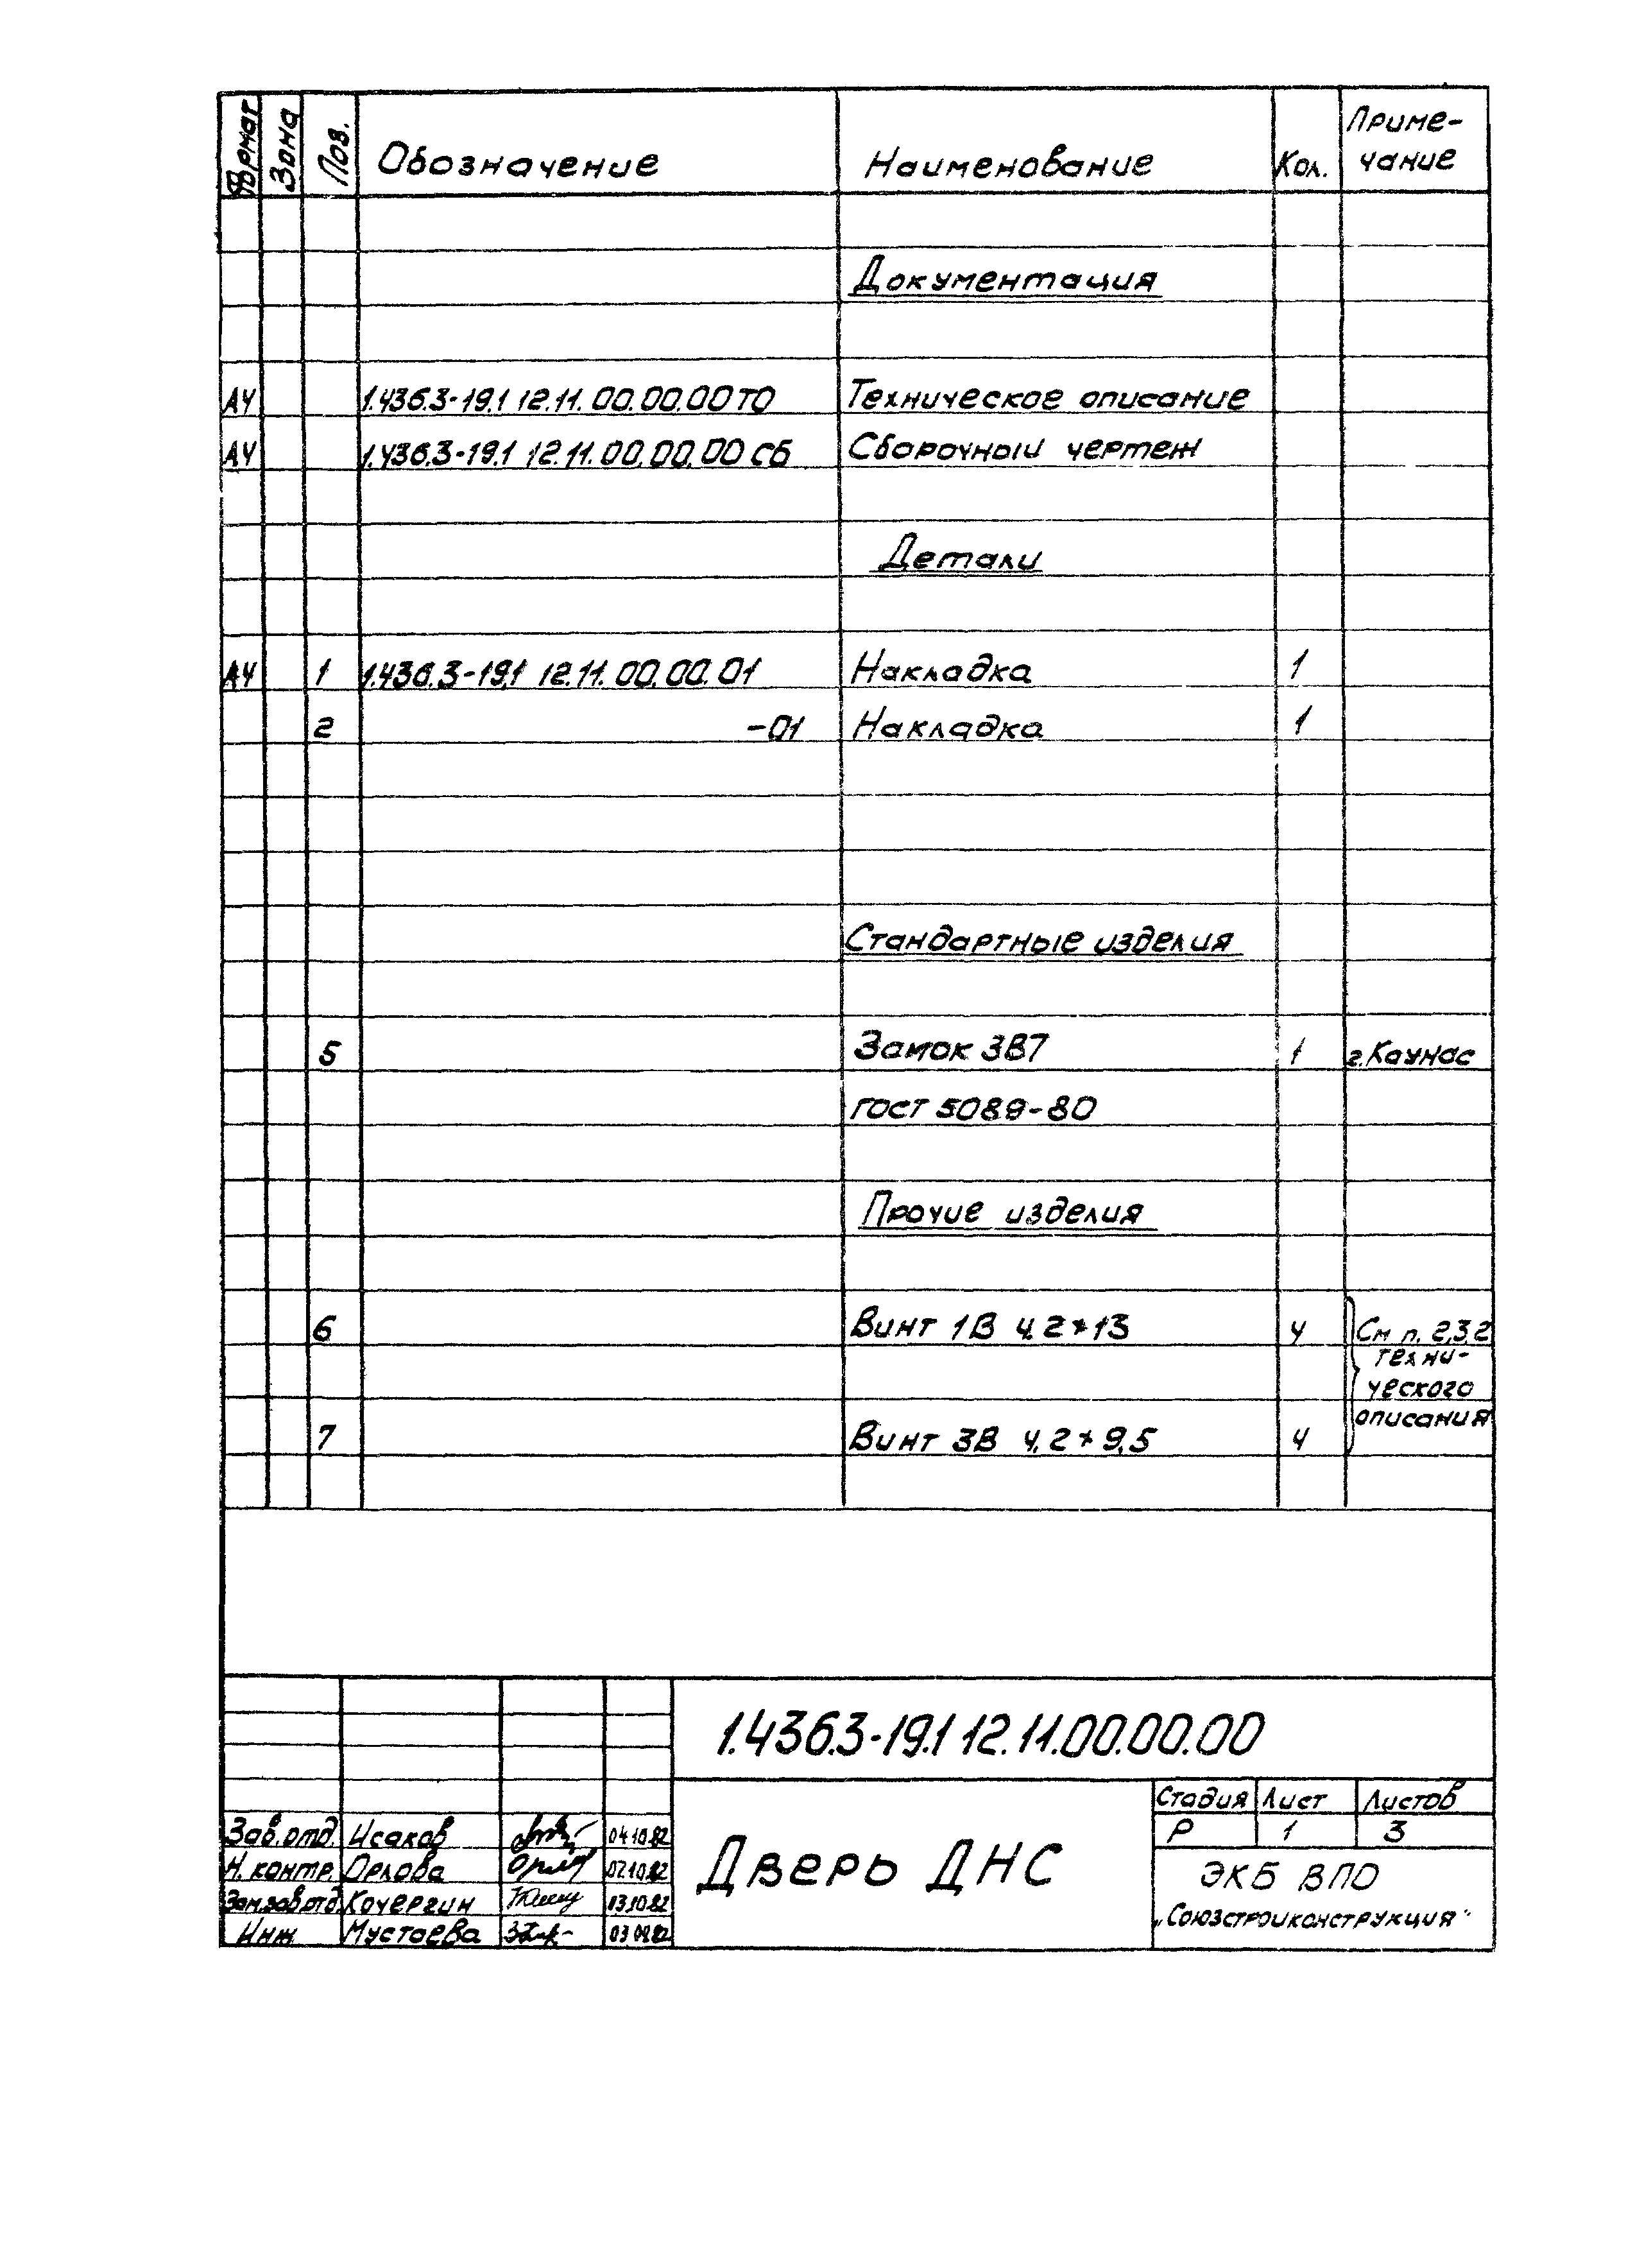 Формат Зона Поз. Обозначение Наименование Кол. Приме-
чание
Документация
А4 1.436.3-19.1 12.11.00.00.00 ТО Техническое описание
А4 1.436.3-19.1 12.11.00.00.00 СБ Сборочный чертеж
Детали
А4 1 1.436.3-19.1 12.11.00.00.01 Накладка 1
2 -01 Накладка 1
Стандартные изделия
5 Замок ЗВ7 1 г. Каунас
ГОСТ 5089-80
Прочие изделия
6 Винт 1В 4,2*13 4 См п. 2.3.2
техни-
ческого
описания
7 Винт 3В 4,2*9,5 4
1.436.3-19.1 12.11.00.00.00
Стадия Лист Листов
Р 1 3
Дверь ДНС
ЭКБ ВПО
„Союзстройконструкция"
Зав.отд. Исаков 04.10.82
Н. контр. Орлова 07.10.82
Зам.зав.отд. Кочергин 03.10.82
Инж Мустаева 03.09.82